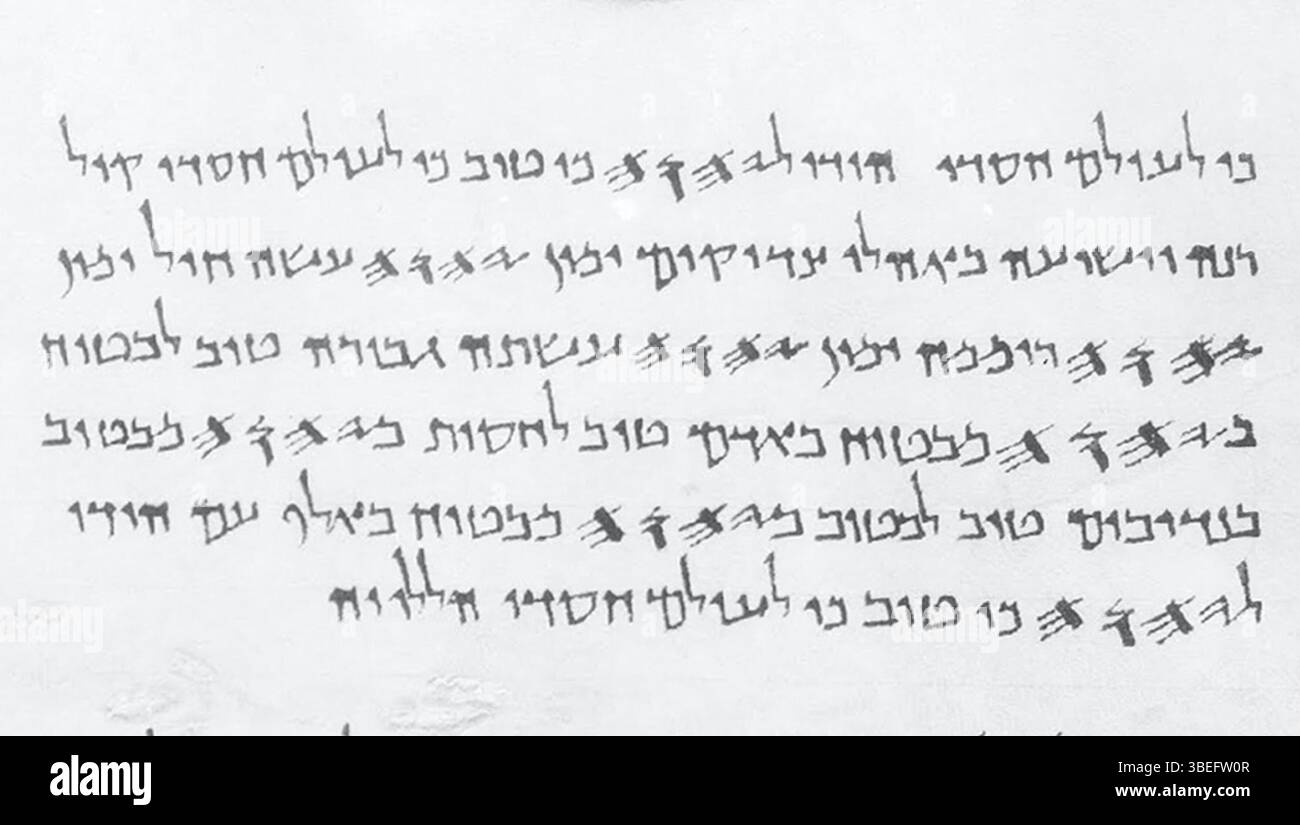 כי לעולם חסדו הודו ל𐤉𐤄𐤅𐤄 כי טוב כי לעולם חסדו קול
רנה וישועה באהלי צדיקים ימין 𐤉𐤄𐤅𐤄 עשה חיל ימין
𐤉𐤄𐤅𐤄 רוממה ימין 𐤉𐤄𐤅𐤄 עשתה גבורה טוב לבטוח
ב𐤉𐤄𐤅𐤄 מבטוח באדם טוב לחסות ב𐤉𐤄𐤅𐤄 מבטוב
בנדיבים טוב לבטוב ב𐤉𐤄𐤅𐤄 מבטוח באלף עם הודו
ל𐤉𐤄𐤅𐤄 כי טוב כי לעולם חסדו הללויה
alamy
Image ID: 3BEFW0R
www.alamy.com